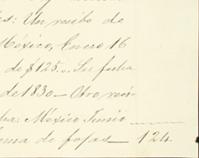 s: Un recibo de
México, Enero 16
de $125.. Su fecha
de 1830_ Otro reci
México Junio
de fojas_ 124.